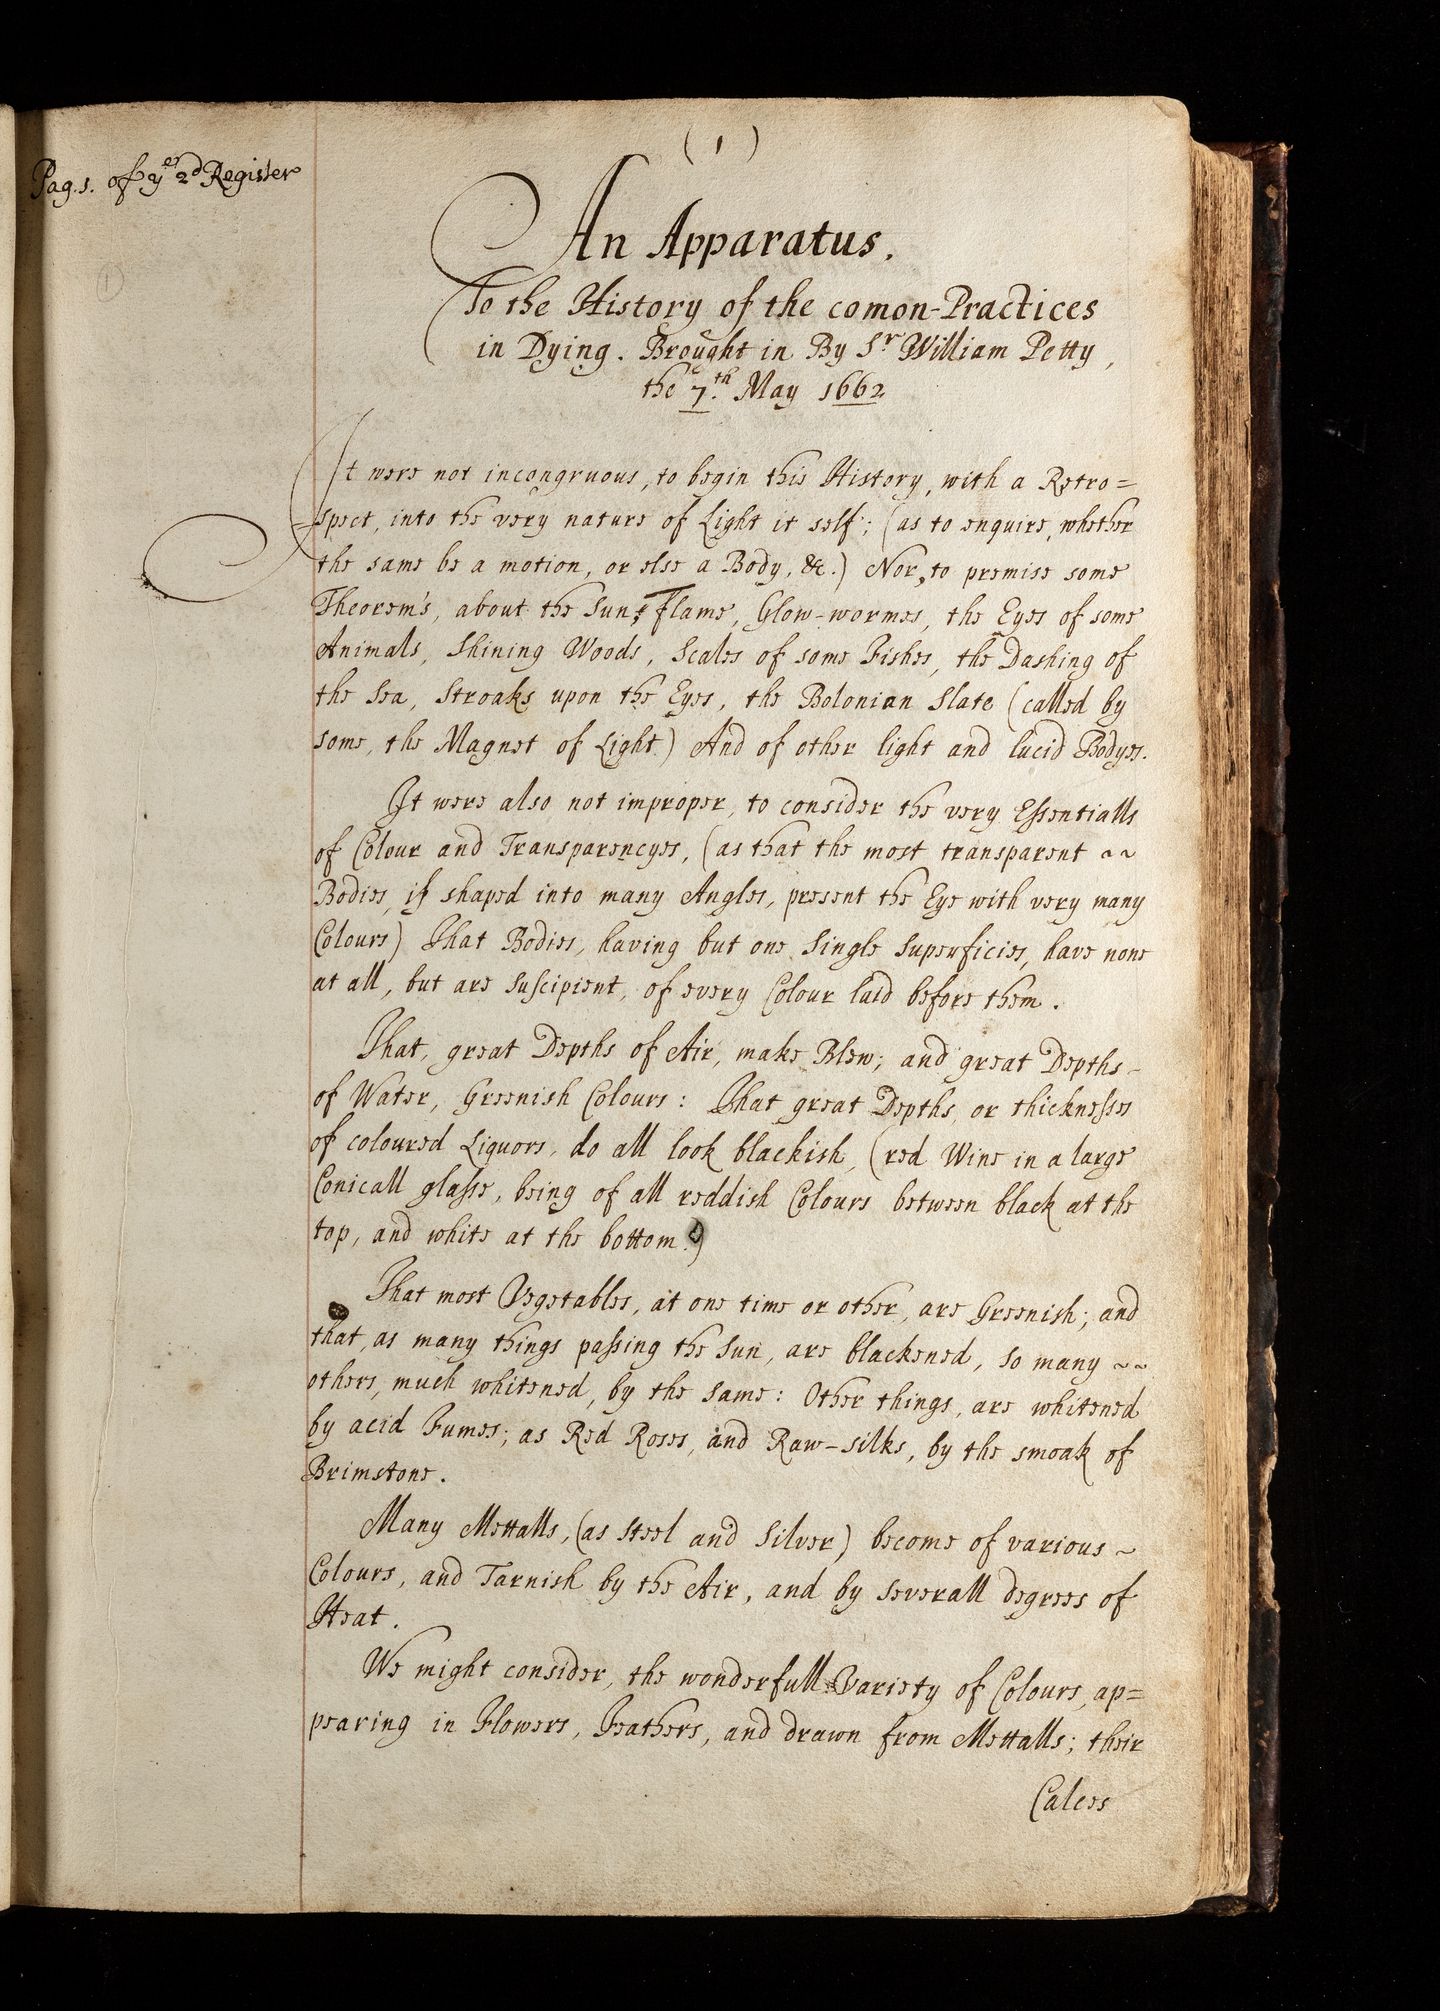 (1)
Pag.1. of yͤ 2ᵈ Register
(1)
An Apparatus.
To the History of the comon-Practices
in Dying. Brought in By Sʳ. William Petty,
the 7.ᵗʰ May 1662
It were not incongruous, to begin this History, with a Retro=
=spect, into the very nature of Light it self; (as to enquire, whether
the same be a motion, or else a Body, &c.) Nor, to premise some
Theorem's, about the Sun, Flame, Glow-wormes, the Eyes of some
Animals, Shining Woods, Scales of some Fishes, the Dashing of
the Sea, Stroaks upon the Eyes, the Bolonian Slate (called by
some, the Magnet of Light) And of other light and lucid Bodyes.
It were also not improper, to consider the very Essentialls
of Colour and Transparencyes, (as that the most transparent ~~
Bodies, if shaped into many Angles, present the Eye with very many
Colours) That Bodies, having but one Single Superficies, have none
at all, but are suscipient, of every Colour laid before them.
That, great Depths of Air, make Blew; and great Depths -
of Water, Greenish Colours: That great Depths, or thicknesses
of coloured Liquors, do all look blackish, (red Wine in a large
Conicall glasse, being of all reddish Colours between black at the
top, and white at the bottom.)
That most Vegetables, at one time or other, are Greenish; and
that, as many things passing the Sun, are blackened, so many ~~
others, much whitened, by the same: Other things, are whitened
by acid Fumes; as Red Roses, and Raw-silks, by the smoak of
Brimstone.
Many Mettalls, (as Steel and Silver) become of various ~
Colours, and Tarnish by the Air, and by severall degrees of
Heat.
We might consider, the wonderfull Variety of Colours, ap=
pearing in Flowers, Feathers, and drawn from Mettalls; their
Calces